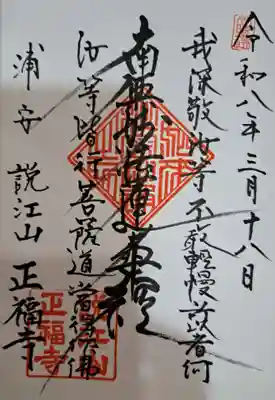 令和八年三月十八日
我深敬汝等不敢軽慢所以者何
南無妙法蓮華経
汝等皆行菩薩道當得作佛
浦安 説江山 正福寺
説江山
正福寺